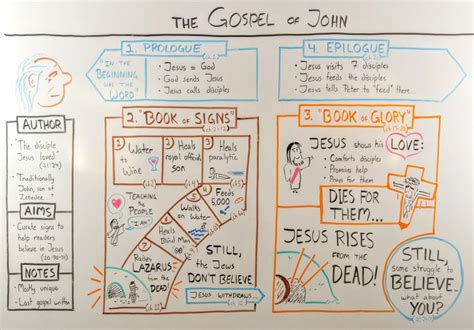 THE GOSPEL OF JOHN
1. PROLOGUE
(ch.1)
"IN THE
BEGINNING
WAS THE
WORD"
• Jesus = God
• God sends Jesus
• Jesus calls disciples
4. EPILOGUE
(ch.21)
• Jesus visits 7 disciples
• Jesus feeds the disciples
• Jesus tells Peter to "feed" them...
AUTHOR
• "The disciple
Jesus loved"
(21:24)
• Traditionally
John, son of
Zebedee
AIMS
• Curate signs
to help readers
believe in Jesus
(20:30-31)
NOTES
• Mostly unique
• Last gospel written
2. "BOOK OF SIGNS"
(ch.2-12)
1 Water
to
Wine
2 Heals
royal official's
son
3 Heals
paralytic
4 Feeds
5000
5 Walks
on Water
6 Heals
Blind Man
7 Raises
LAZARUS
from the
DEAD!
TEACHING
THE
PEOPLE
I AM
STILL,
the Jews
DON'T BELIEVE.
JESUS WITHDRAWS...
3. "BOOK OF GLORY"
(ch.13-20)
JESUS shows his LOVE:
• Comforts disciples
• Promises help
• Prays for them
DIES FOR
THEM...
JESUS RISES
FROM THE
DEAD!
STILL,
some struggle to
BELIEVE.
what about
YOU?